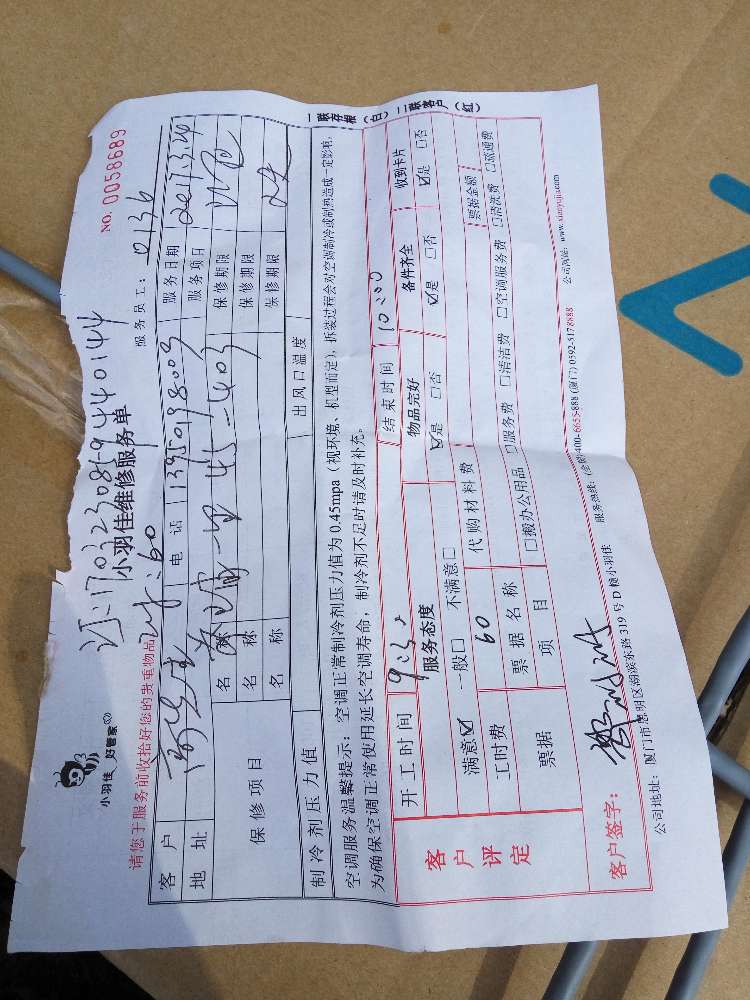 NO. 0058689
小羽佳 好管家
小羽佳维修服务单
服务员工：0136
请您于服务前收拾好您的贵重物品
60
客户
电话 13950198009
服务日期 2017.3.24
地址
45-403
服务项目
保修项目
名称
保修期限
名称
保修期限
名称
保修期限
制冷剂压力值
出风口温度
空调服务温馨提示：空调正常制冷剂压力值为0.45mpa（视环境、机型而定），拆装过程会对空调制冷或制热造成一定影响，
为确保空调正常使用延长空调寿命，制冷剂不足时请及时补充。
一联存根（白）二联客户（红）
客户评定
开工时间
结束时间 10:00
服务态度
物品完好
备件齐全
收到卡片
满意☑ 一般□ 不满意□
☑是 □否
☑是 □否
☑是 □否
工时费 60
代购材料费
票据金额
票据
票据名称
项目
□搬办公用品 □服务费 □清洁费 □空调服务费 □清洗费 □疏通费
客户签字：
公司地址：厦门市思明区湖滨东路319号D幢小羽佳
服务热线：(全国)400-6655-888 (厦门) 0592-5178888
公司网站：www.xiaoyujia.com